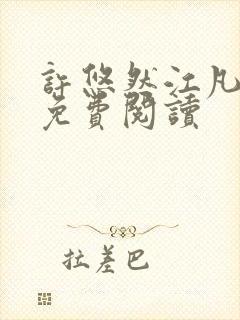 許悠然江凡
免費閱讀
拉差巴